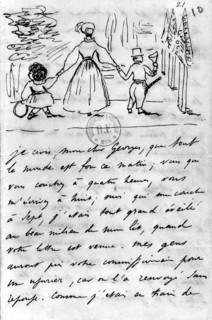 21
je crois, mon cher Georges, que tout
le monde est fou ce matin, vous qui
vous couchez à quatre heures, vous
m'écrivez à huit; moi qui me couche
à sept, j'étais tout grand éveillé
au beau milieu de mon lit, quand
votre lettre est venue. mes gens
auront pris votre commissionnaire pour
un usurier, car on l'a renvoyé sans
réponse. Comme j'étais en train de